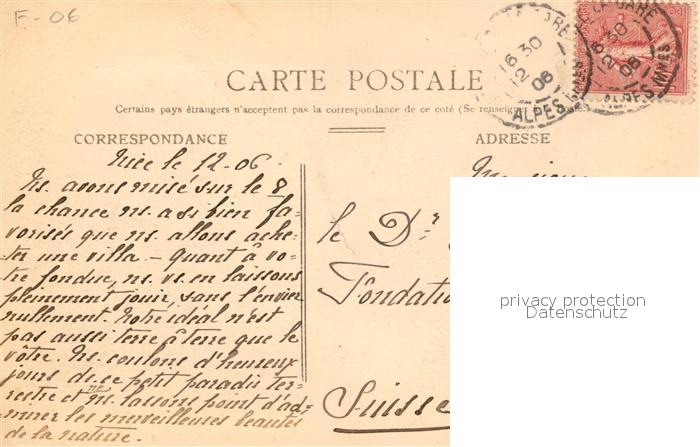 F-06
CARTE POSTALE
Certains pays étrangers n'acceptent pas la correspondance de ce coté (Se renseigner
CORRESPONDANCE
ADRESSE
16 30
12
06
ALPES
16 30
12
06
GARE
ALPES MMES
Nice le 12-06.
Ns. avons misé sur le 8
la chance ns. a si bien fa-
vorisés que ns. allons ache-
ter une villa - quant à vo-
tre fondue, ns. vs. en laissons
pleinement jouir, sans l'envier
nullement. Notre idéal n'est
pas aussi terre à terre que le
vôtre. Ns. coulons d'heureux
jours ds. ce petit paradis ter-
restre et ne ns. lassons point d'ad-
mirer les merveilleuses beautés
de la nature.
le Dr
Fondatio
Suisse
privacy protection
Datenschutz